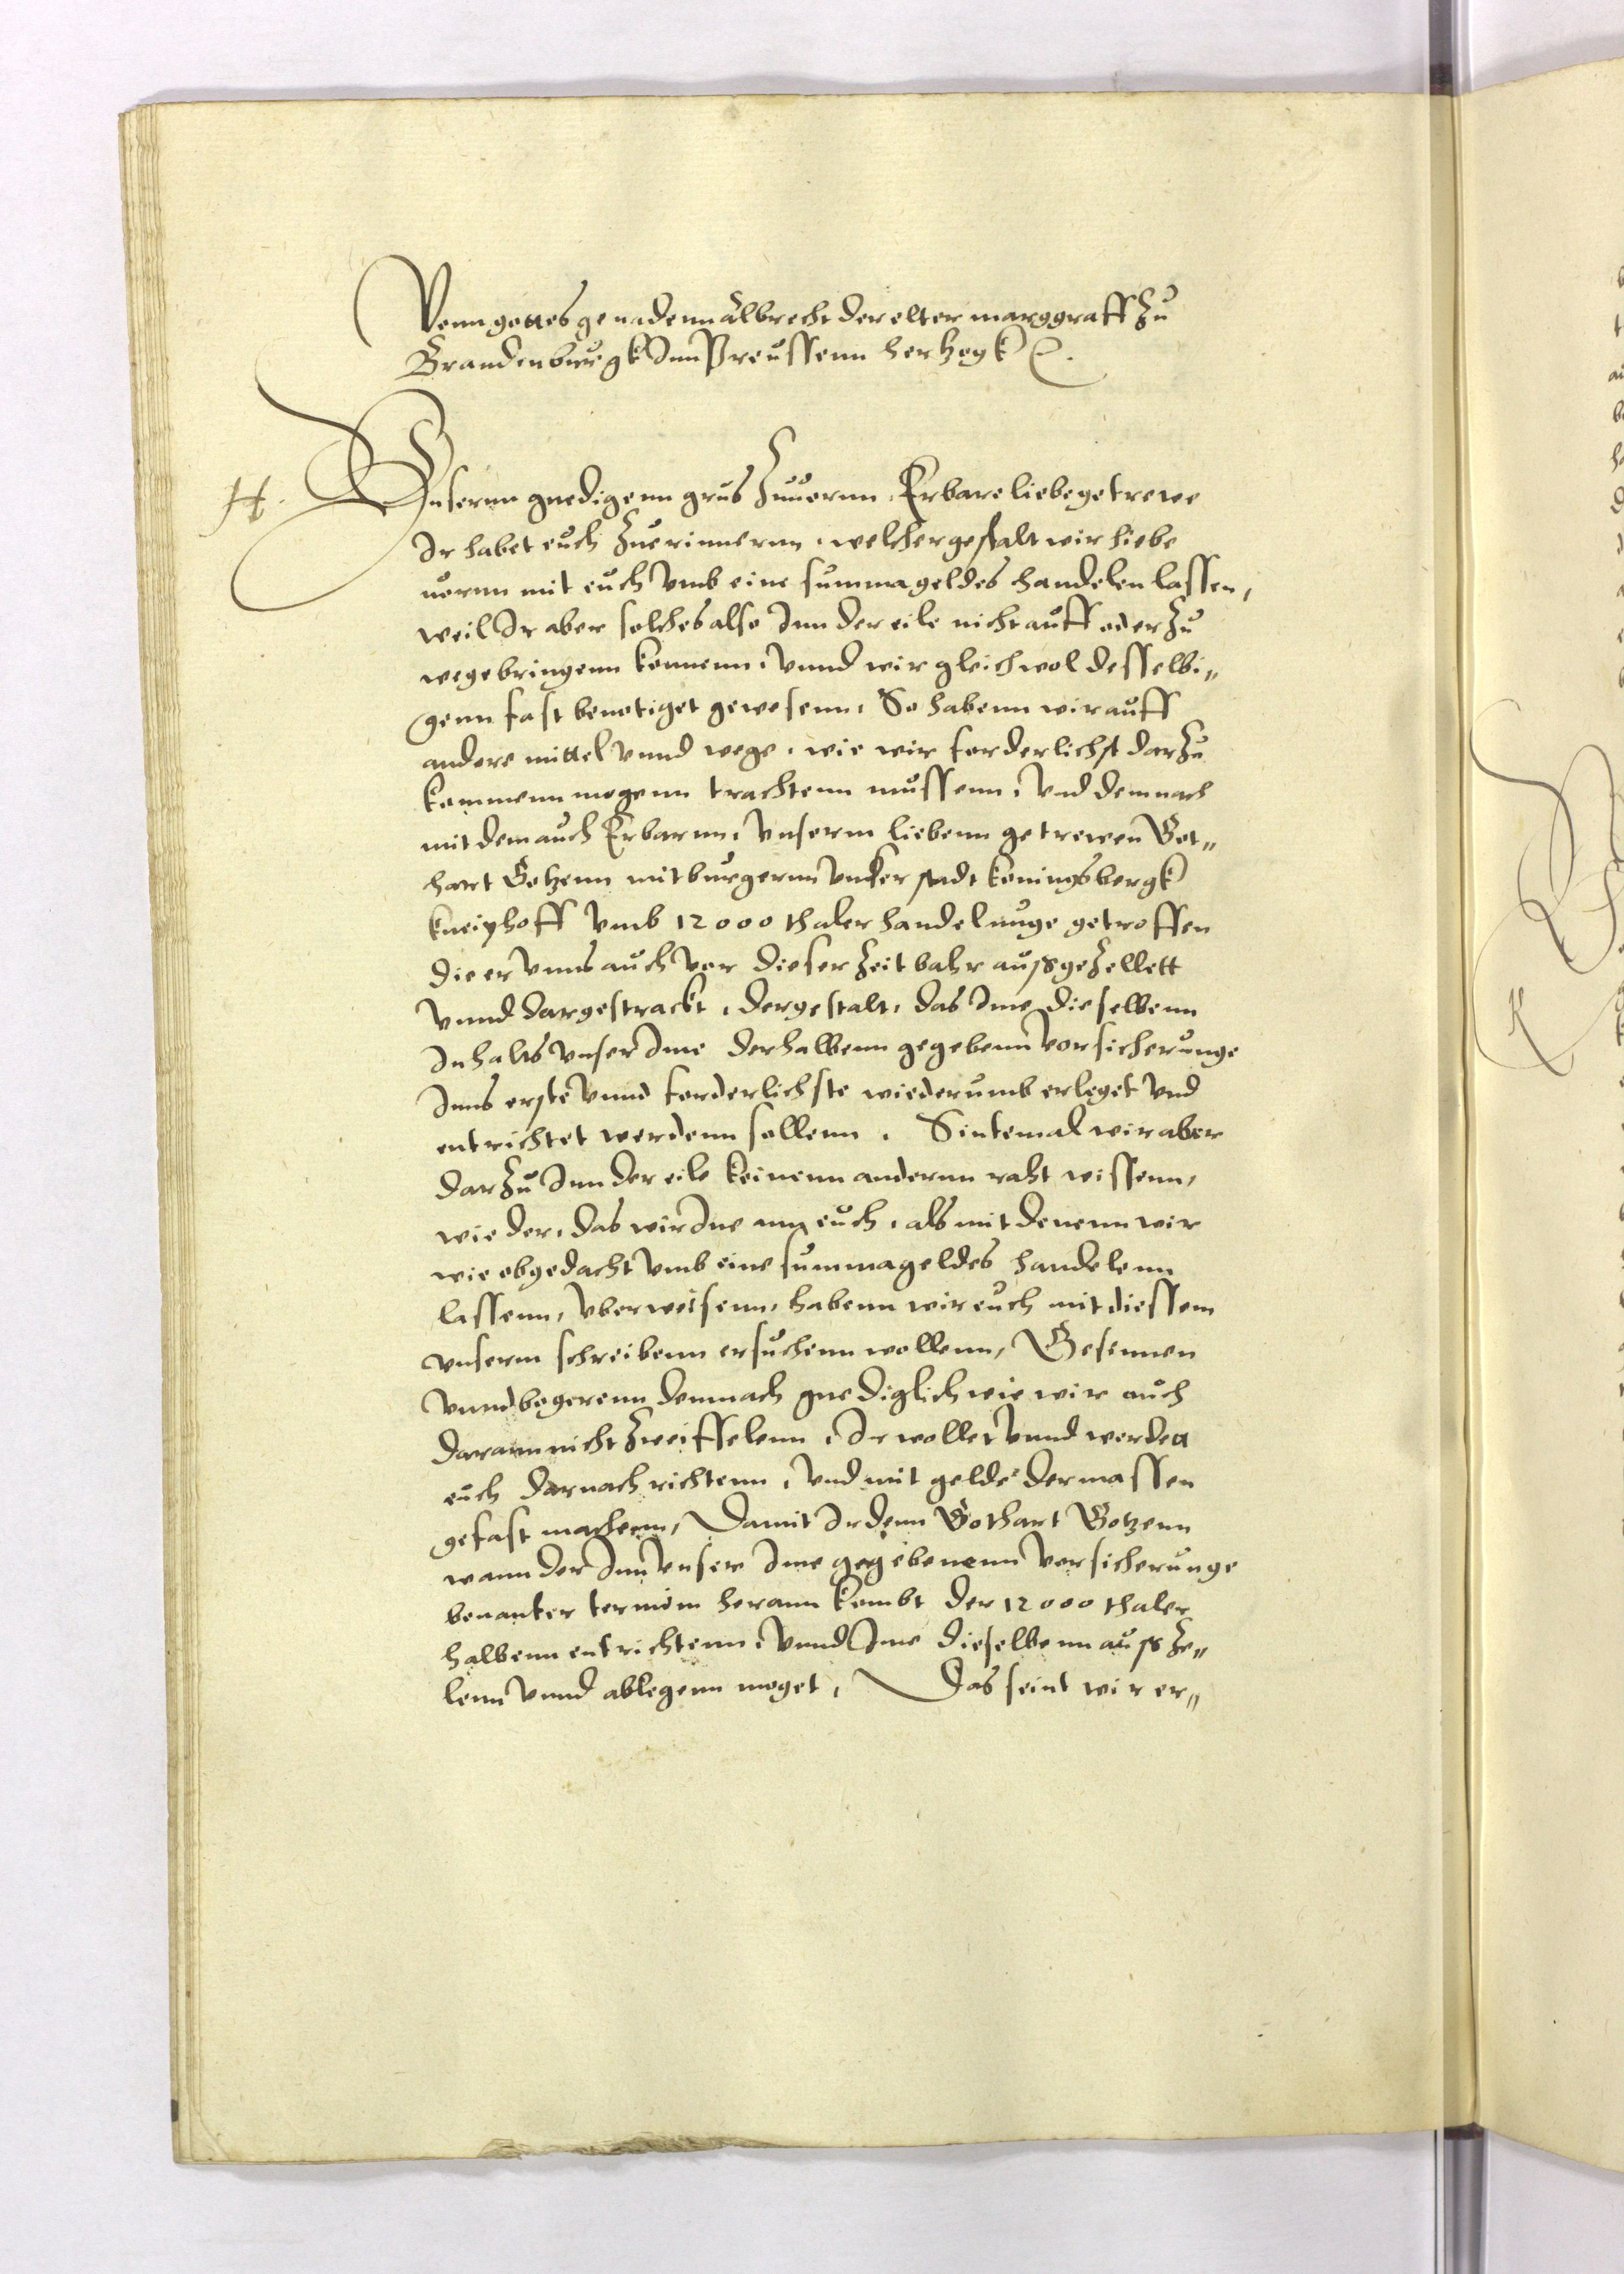 Vonn gottes genadenn Albrecht der elter marggraff zu
Brandenburgk Inn Preussenn hertzogk etc.
H.
Vnsernn gnedigenn grus zuuornn, Erbare liebe getrewe
Ir habet euch zuerinnernn, welchergestalt wir hiebe
uornn mit euch vmb eine summa geldes handelen lassen,
weil Ir aber solches also Inn der eile nicht auff oder zu
wege bringenn konnenn, vnnd wir gleichwol desselbi„
genn fast benotiget gewesenn, So habenn wir auff
andere mittel vnnd wege, wie wir forderlichst darzu
kommenn mogenn trachtenn mussenn, vnd demnach
mit dem auch Erbarnn, vnserm liebenn getrewen Got„
hart Gotzenn mitburgernn vnser stadt Konings bergk
Kneiphoff vmb 12000 thaler handelunge getroffen
die er vnns auch vor dieser zeit bahr aussgezellett
vnnd dargestrackt, dergestalt, das Ime dieselbenn
Inhalts vnser Ime derhalbenn gegebenn vorsicherunge
Inns erste vnnd forderlichste wiederumb erleget vnd
entrichtet werdenn sollenn, Sintemal wir aber
darzu Inn der eile keinenn andernn raht wissenn,
wie der, das wir Ine ann euch, als mit denenn wir
wie obgedacht vmb eine summa geldes handelenn
lassenn, vberweisenn, habenn wir euch mit diessem
vnserm schreibenn ersuchenn wollenn, Gesinnen
vnnd begerenn demnach gnediglich wie wir auch
darann nicht zweiffelenn, Ir wollet vnnd werdet
euch darnach richtenn, vnd mit gelde dermassen
gefast machenn, Damit Ir denn Gothart Gotzenn
wann der Inn vnser Ime gegebenenn versicherunge
benanter termin herann kombt der 12000 thaler
halbenn entrichtenn, vnnd Ime dieselbenn ausze„
lenn vnnd ablegenn moget, Das seint wir er„
K